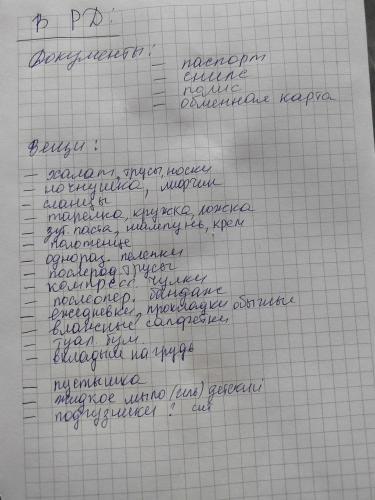 В РД:
Документы:
— паспорт
— снилс
— полис
— обменная карта
Вещи:
— халат, трусы, носки
— ночнушка, лифчик
— сланцы
— тарелка, кружка, ложка
— зуб. паста, шампунь, крем
— полотенце
— однораз. пеленки
— послерод. трусы
— компресс. чулки
— послеопер. бандаж
— ежедневки, прокладки обычные
— влажные салфетки
— туал. бум.
— вкладыши на грудь
— пустышка
— жидкое мыло (или) детский
— подгузники !